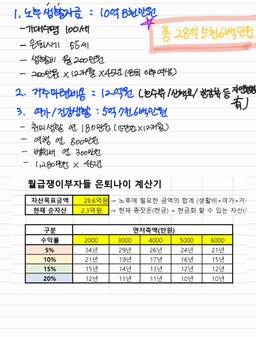 1. 노후 생활자금 : 10억 8천만원
총 28억 5천6백만원
- 기대수명 100세
- 은퇴시기 55세
- 생활비 월 200만원
- 200만원 × 12개월 × 45년 (은퇴 이후 여생)
2. 거주마련비용 : 12억원
3. 여가/건강생활 : 5억 7천6백만원
- 취미생활 연 180만원 (15만원×12개월)
- 여행 연 800만원
- 병원비 연 300만원
- 1,280만원 × 45년
월급쟁이부자들 은퇴나이 계산기
자산목표금액 28.6억원 → 노후에 필요한 금액의 합계 (생활비+여가+거
현재 순자산 2.3억원 → 현재 종잣돈(현금) + 현금화 할 수 있는 자산(
구분 연저축액(만원)
수익률 2000 3000 4000 5000 6000
5% 34년 29년 26년 24년 21년
10% 21년 19년 17년 16년 15년
15% 15년 14년 13년 12년 12년
20% 12년 11년 11년 10년 10년